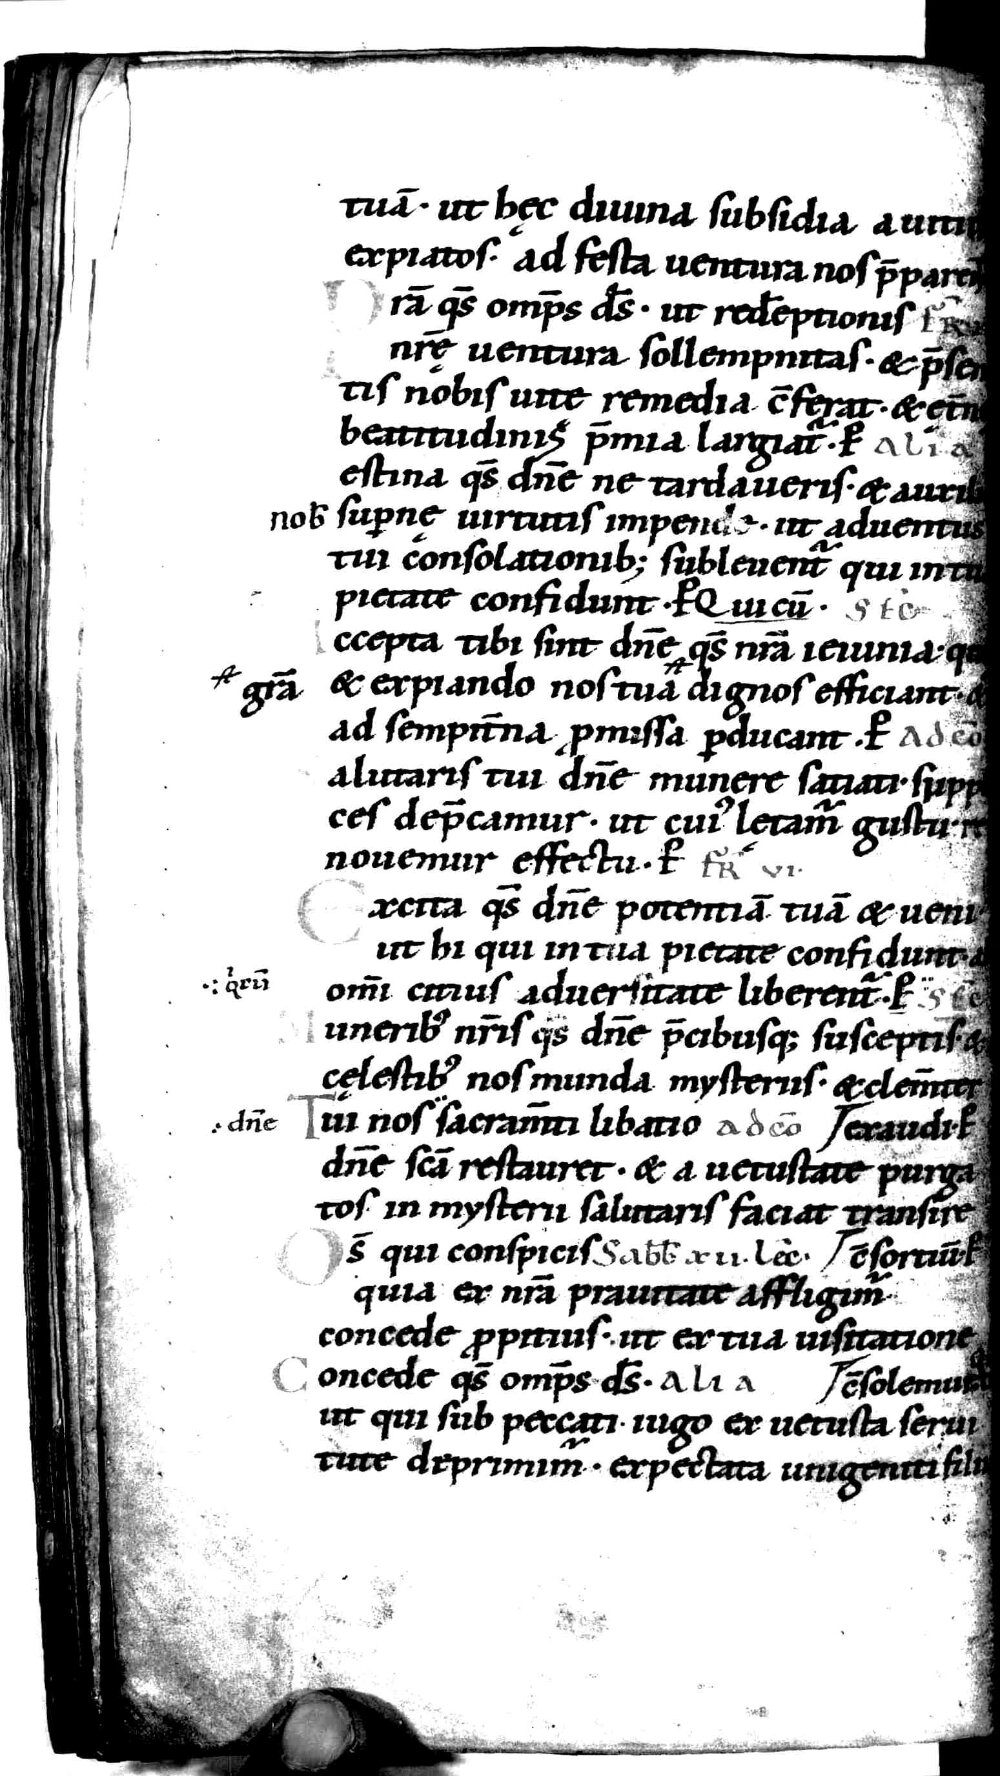 tuā· ut hęc diuina subsidia a uitiis
expiatos· ad festa uentura nos p̄parent
Prā qs̄ omp̄s ds̄· ut redēptionis fr̄
nrę̄ uentura sollempnitas· & p̄sen
tis nobis uite remedia c̄ferat· & et̄n
beatitudinis p̄mia largiat̄· P̄ alia
estina qs̄ dn̄e ne tardaueris· & auxili
nob̄ sup̱nę uirtutis impende· ut aduentus
tui consolationib; subleuent̄ qui in tu
pietate confidunt· P̄ Qui cū· Sec̄
ccepta tibi sint dn̄e qs̄ nr̄a ieiunia· qu
grā & expiando nos tua dignos efficiant· &
ad sempit̄na promissa p̱ducant· P̄ Ad cō
alutaris tui dn̄e munere satiati· supp
ces dep̄camur· ut cui᾽ letam̄ gustu· re
nouemur effectu· P̄ fr̄ vi·
Excita qs̄ dn̄e potentiā tuā & ueni·
ut hi qui in tua pietate confidunt· a
om̄i citius aduersitate liberent̄· P̄ Sec̄
Munerib᾽ nr̄is qs̄ dn̄e p̄cibusq; susceptis· &
cęlestib᾽ nos munda mysteriis· & clem̄ter
dn̄e Tui nos sacram̄ti libatio ad cō exaudi· P̄
dn̄e scā restauret· & a uetustate purga
tos in mysterii salutaris faciat transire
Ds̄ qui conspicis Sabb̄ xii· lēc· c̄sortiū· P̄
quia ex nrā prauitate affligim̄
concede propitius· ut ex tua uisitatione
Concede qs̄ omp̄s ds̄· alia c̄solemur
ut qui sub peccati iugo ex uetusta serui
tute deprimim̄· expectata unigeniti filii